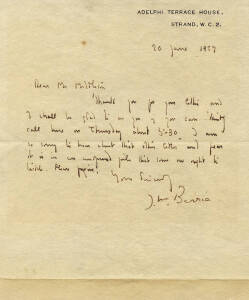 ADELPHI TERRACE HOUSE,
STRAND, W.C.2.
20 June 1927
Dear Mr
Thank you for your letter and
I shall be glad to see you if you can kindly
call here on Thursday about 5-30. I am
so sorry to hear about that other letter and fear
it is in an unopened pile that one no right to
Yours Sincerely
J. M. Barrie